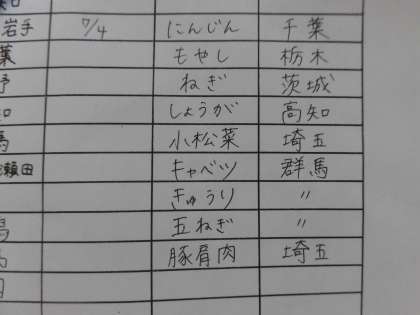 岩手 7/4 にんじん 千葉
葉 もやし 栃木
野 ねぎ 茨城
知 しょうが 高知
馬 小松菜 埼玉
瀬田 キャベツ 群馬
きゅうり 〃
五ねぎ 〃
豚肩肉 埼玉